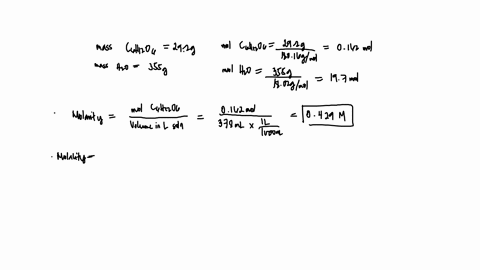 mass C6H12O6 = 29.2g mol C6H12O6 = 29.2g / 180.16g/mol = 0.162 mol
mass H2O = 355g mol H2O = 355g / 18.02g/mol = 19.7 mol
· Molarity = mol C6H12O6 / Volume in L soln = 0.162 mol / 378 mL × 1L / 1000mL = 0.429 M
· Molality =